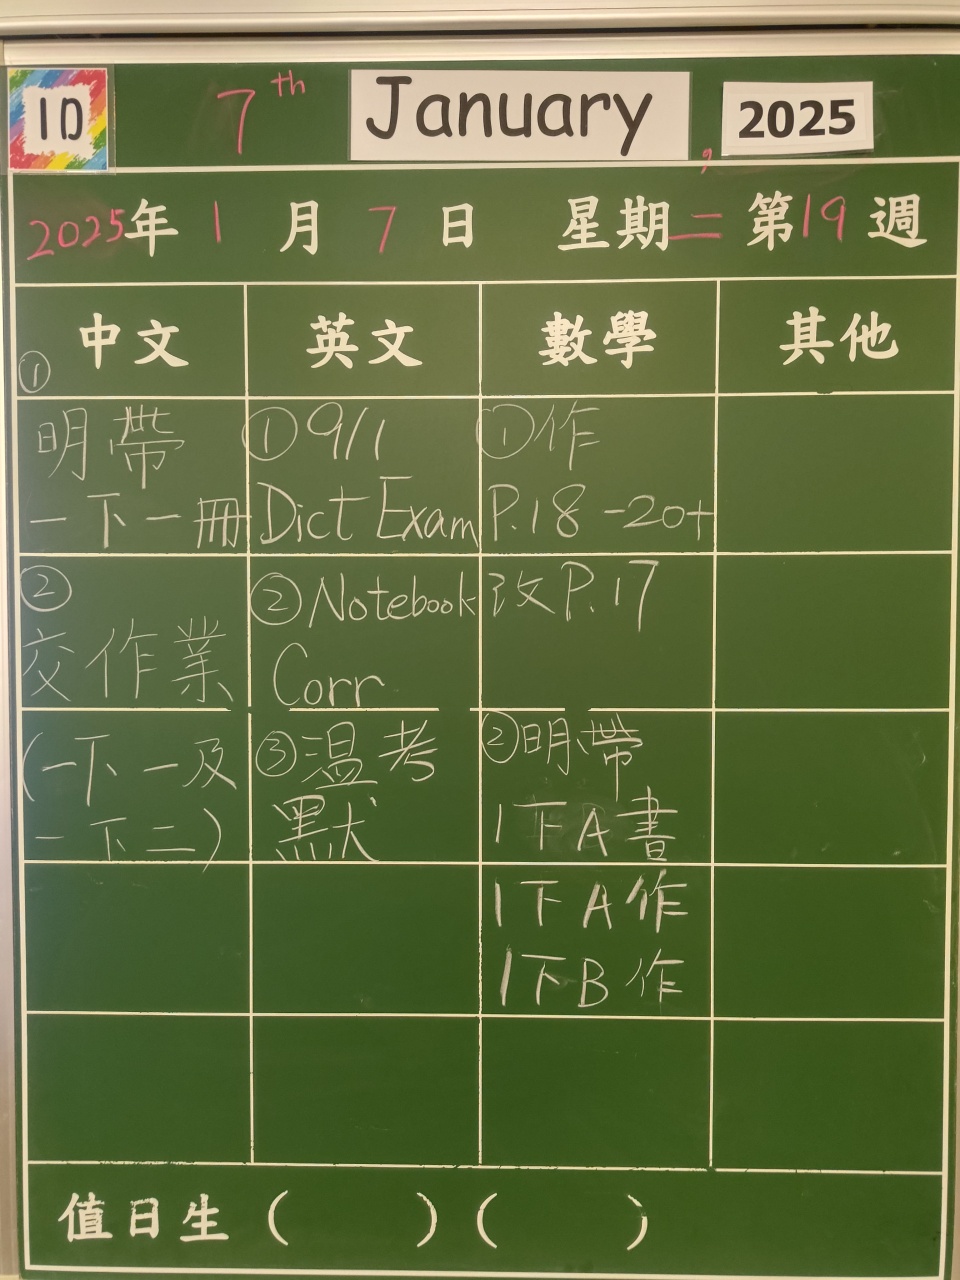 1D
7th January, 2025
2025年1月7日 星期二 第19週
中文 英文 數學 其他
①
明帶
一下一冊
②
交作業
(一下一及
一下二)
①9/1
Dict Exam
②Notebook
Corr
③溫考
默
①作
P.18-20+
改P.17
②明帶
1下A書
1下A作
1下B作
值日生 ( ) ( )